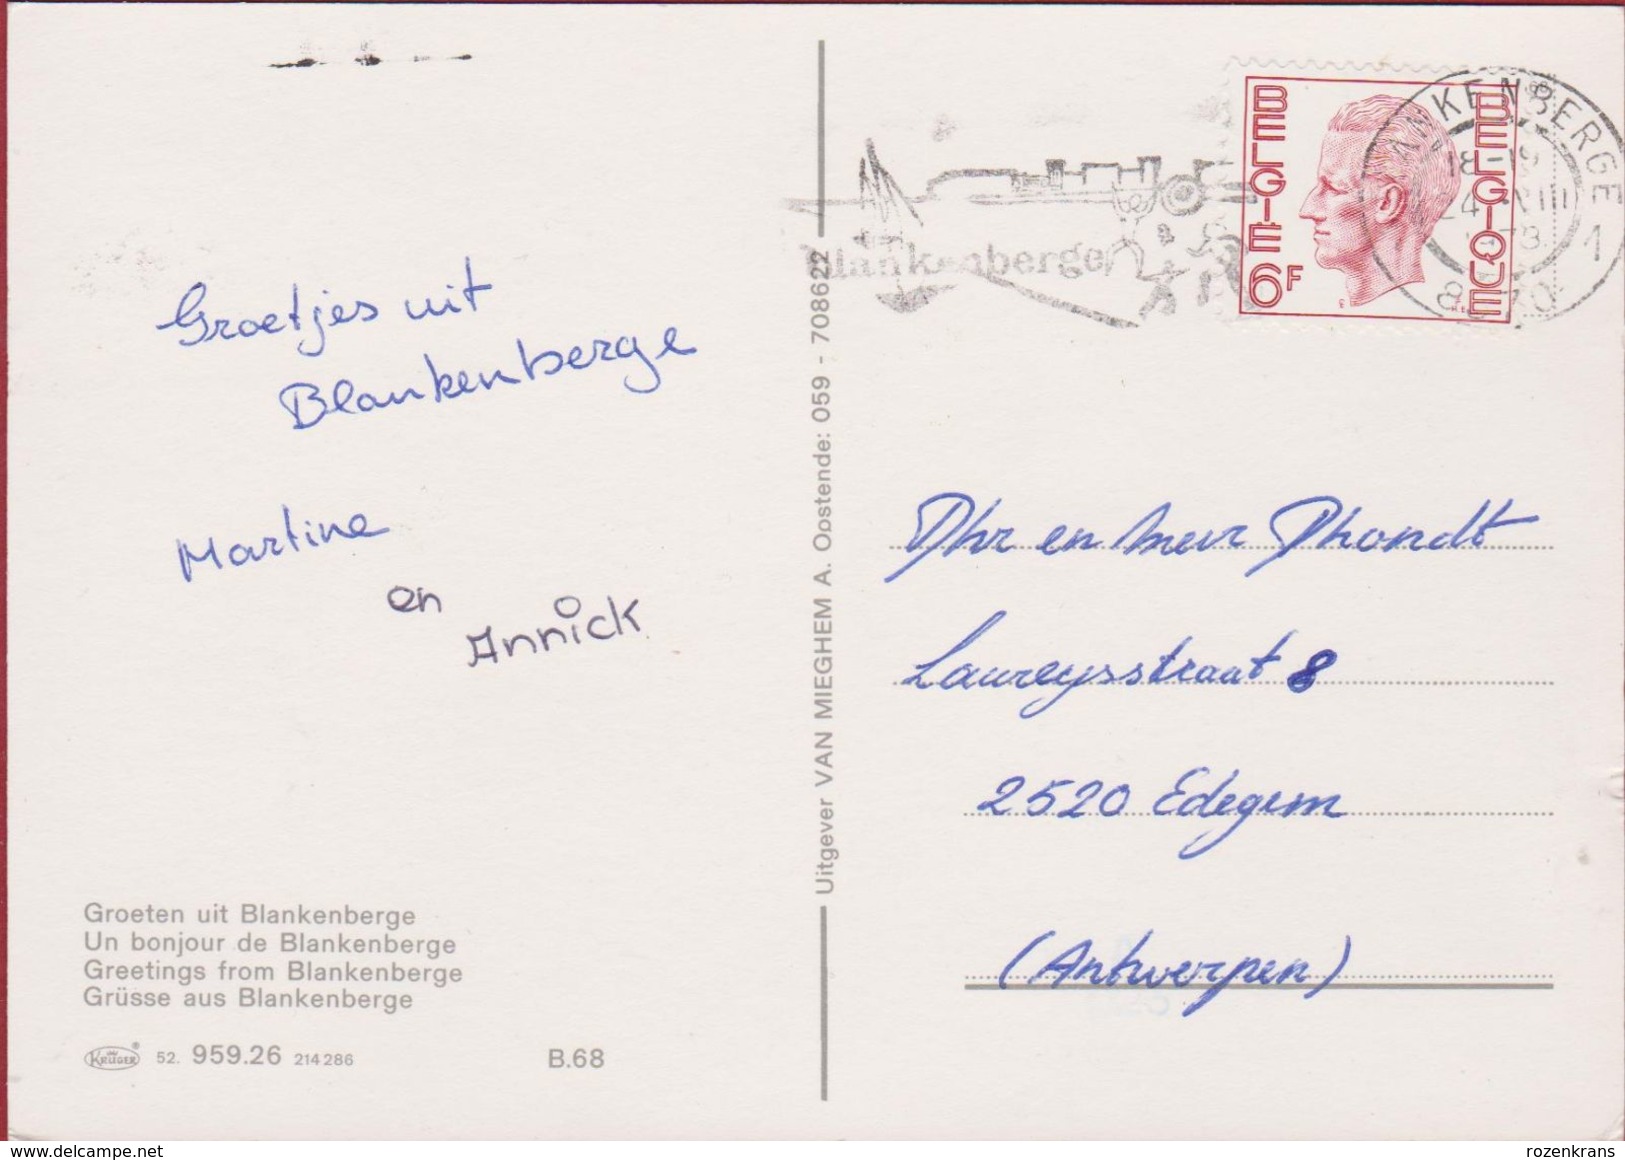 Groetjes uit
Blankenberge
Martine
en
Annick
Groeten uit Blankenberge
Un bonjour de Blankenberge
Greetings from Blankenberge
Grüsse aus Blankenberge
KRÜGER 52. 959.26 214286 B.68
Uitgever VAN MIEGHEM A. Oostende: 059 - 708622
Blankenberge
BELGIE 6F
BELGIQUE
18-19
24
Dhr en mevr Dhondt
Laureysstraat 8
2520 Edegem
(Antwerpen)
delcampe.net
rozenkrans